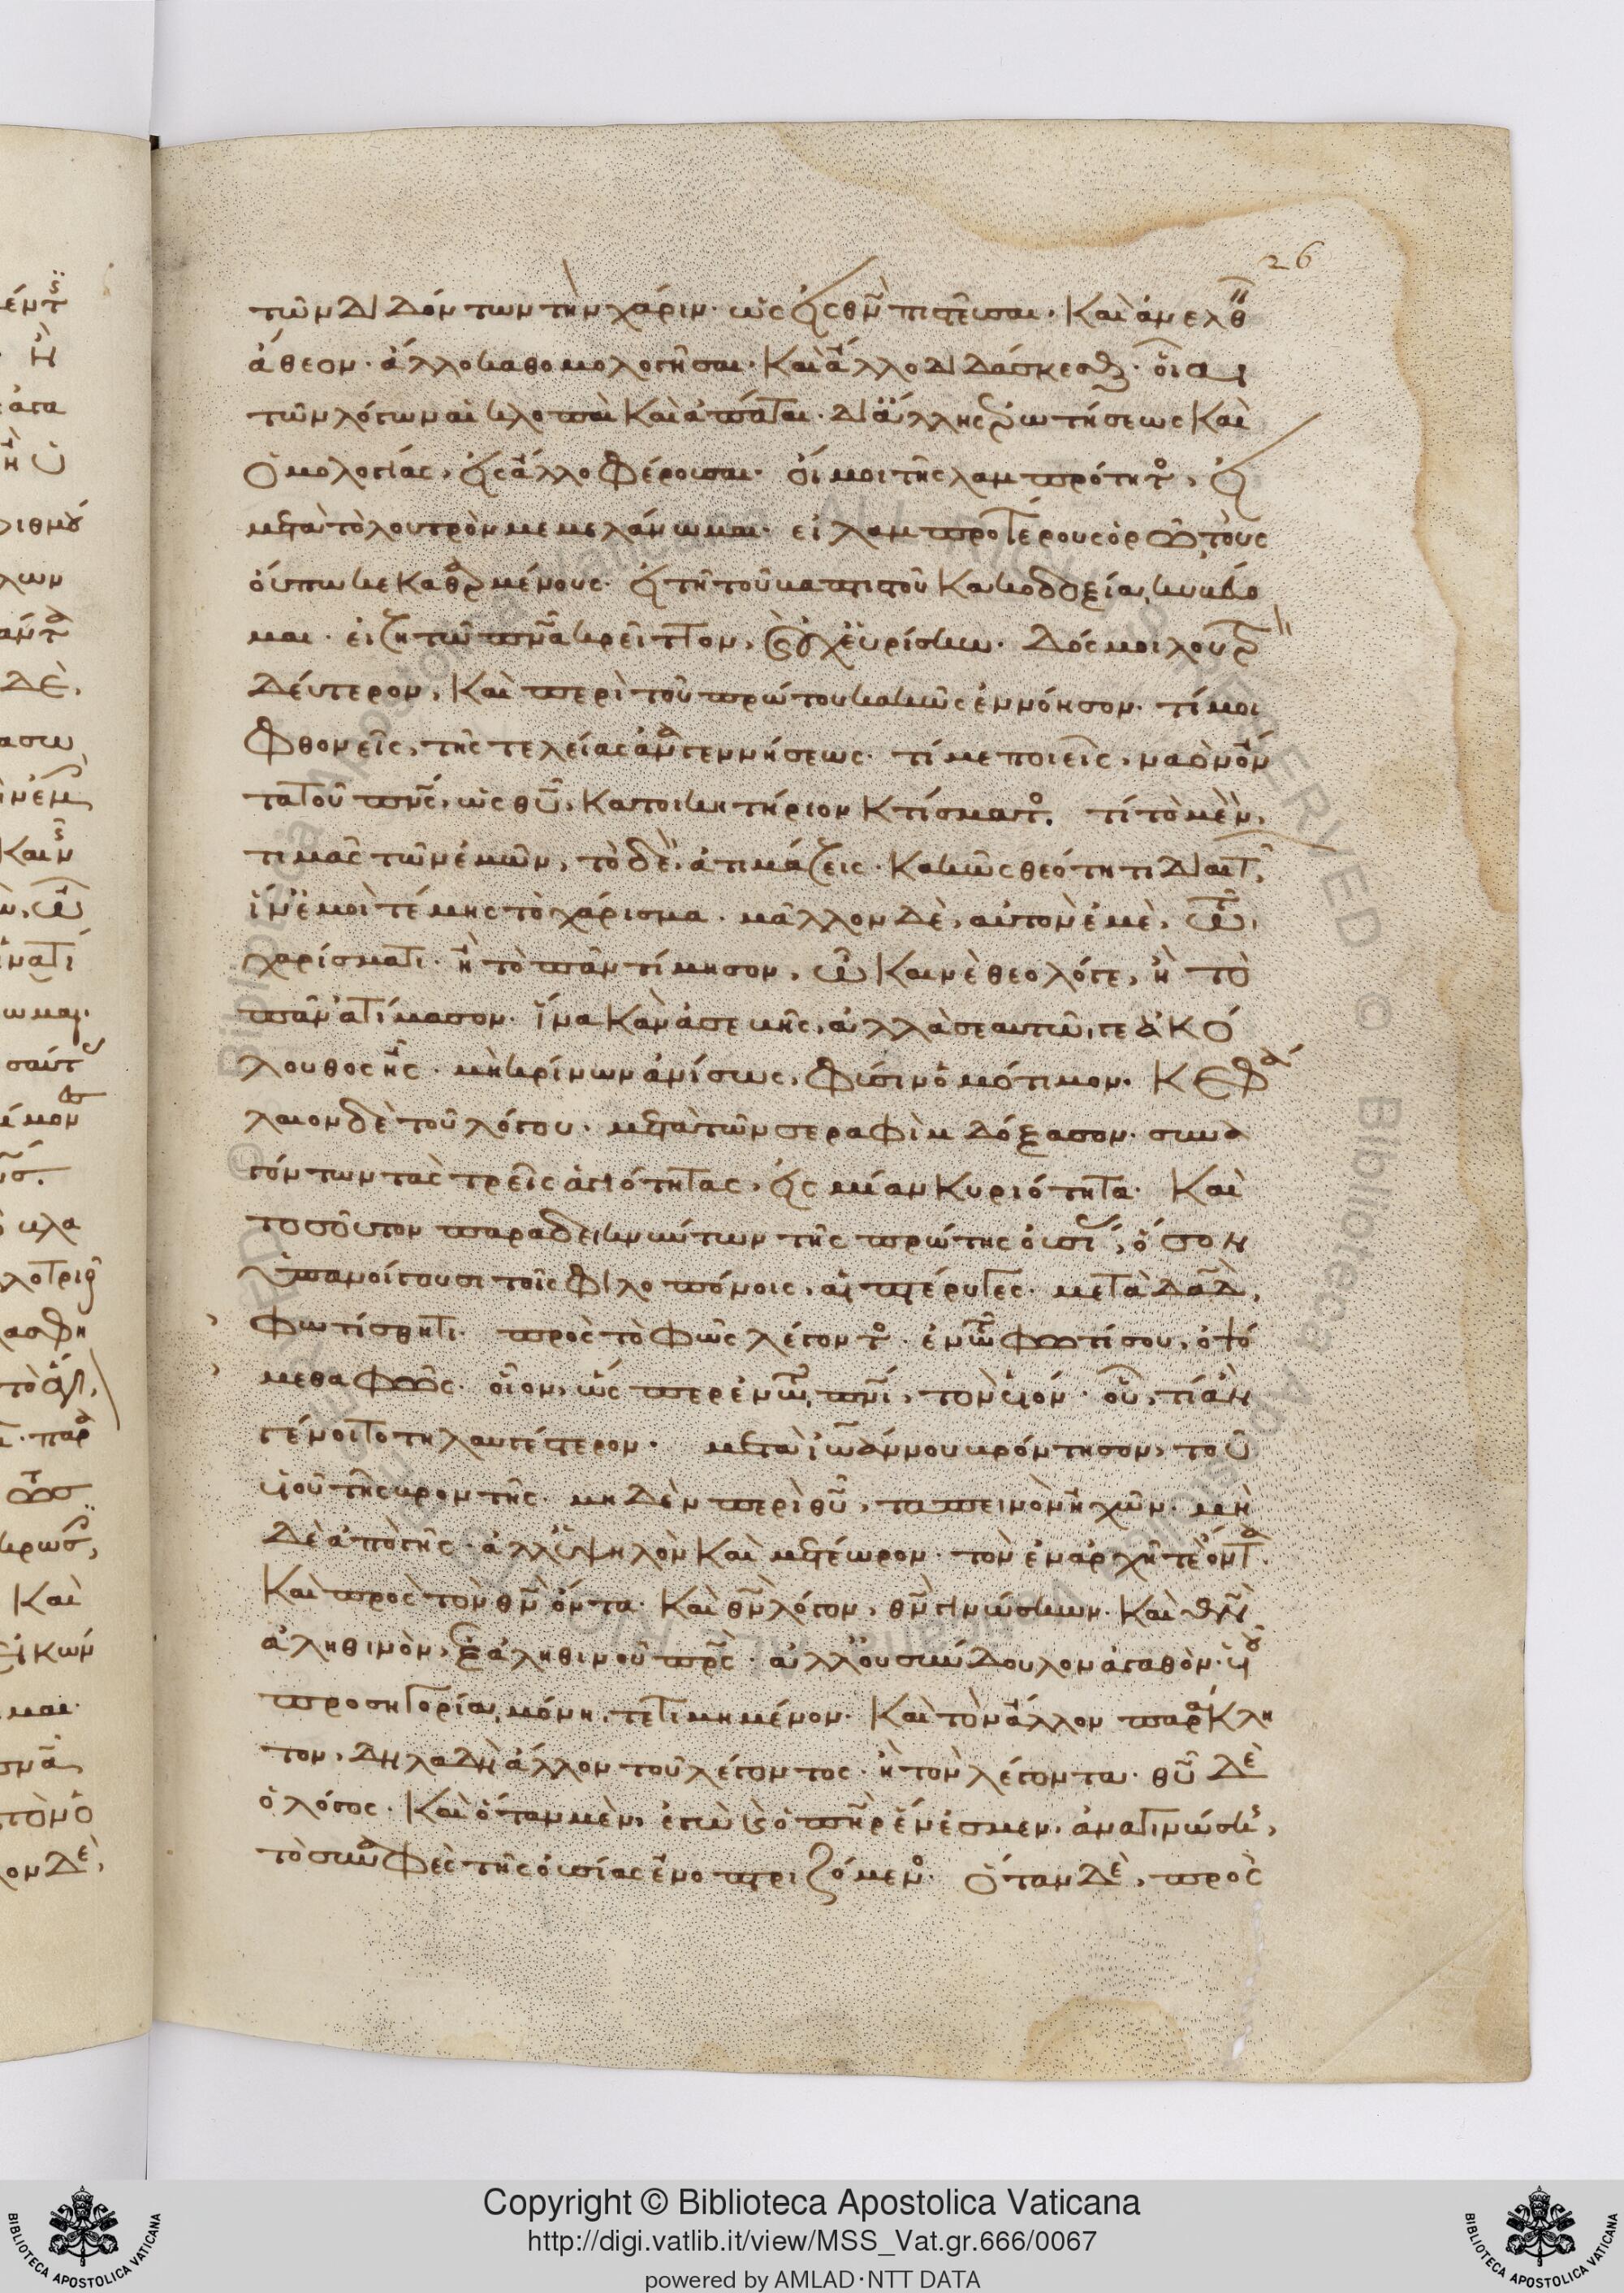 26
τῶν διδόντων τὴν χάριν· ὡς εἰς θν̅ πιστεῦσαι· καὶ ἀνελθεῖν
ἄθεον· ἄλλο καθομολογῆσαι· καὶ ἄλλο διδάσκεσθαι· οἷαι
τῶν λόγων αἱ κλοπαὶ καὶ ἀπάται· δι' ἄλλης ἐρωτήσεως καὶ
ὁμολογίας, εἰς ἄλλο φέρουσαι· οἴμοι τῆς λαμπρότητος, εἰ
μετὰ τὸ λουτρὸν μεμελάνωμαι· εἰ λαμπροτέρους ὁρῶ τοὺς
οὔπω κεκαθαρμένους· εἰ τῆ τοῦ βαπτιστοῦ κακοδοξία κυκῶ
μαι· εἰ ζητῶ πνα̅ κρεῖττον, καὶ οὐχ εὑρίσκω· δός μοι λουτρὸν
δεύτερον, καὶ περὶ τοῦ πρώτου κακῶς ἐννόησον· τί μοι
φθονεῖς, τῆς τελείας ἀναγεννήσεως· τί με ποιεῖς, ναὸν ὄν
τα τοῦ πνς̅, ὡς θυ̅, κατοικητήριον κτίσματος· τί τὸ μὲν,
τιμᾶς τῶν ἐμῶν, τὸ δὲ, ἀτιμάζεις· κακῶς θεότητι διαιτῶν,
ἵν' ἐμοὶ τέμης τὸ χάρισμα· μᾶλλον δὲ, αὐτὸν ἐμὲ, τῶ
χαρίσματι· ἢ τὸ πᾶν τίμησον, ὦ καινὲ θεολόγε, ἢ τὸ
πᾶν ἀτίμασον· ἵνα κἂν ἀσεβῆς, ἀλλὰ σεαυτῶ γε ἀκό
λουθος ἦς· μὴ κρίνων ἀνίσως, φύσιν ὁμότιμον· κεφά
λαιον δὲ τοῦ λόγου· μετὰ τῶν σεραφὶμ δόξασον· συνα
γόντων τὰς τρεῖς ἁγιότητας, εἰς μίαν κυριότητα· καὶ
τοσοῦτον παραδεικνύντων τῆς πρώτης οὐσίας, ὅσον
ὑπανοίγουσι τοῖς φιλοπόνοις, αἱ πτέρυγες· μετὰ δαδ̅,
φωτίσθητι· πρὸς τὸ φῶς λέγοντος· ἐν τῶ φωτί σου, ὀψό
μεθα φῶς· οἷον, ὥσπερ ἐν τῶ πνι̅, τὸν υἱόν· οὗ, τί ἂν
γένοιτο τηλαυγέστερον· μετὰ ἰωάννου βρόντησον, τοῦ
υἱοῦ τῆς βροντῆς· μηδὲν περὶ θυ̅, ταπεινὸν ἠχῶν· μη
δὲ ἀπὸ γῆς· ἀλλ' ὑψηλὸν καὶ μετέωρον· τὸν ἐν ἀρχῆ τὲ ὄντα
καὶ πρὸς τὸν θν̅ ὄντα· καὶ θν̅ λόγον, θν̅ γινώσκων· καὶ θν̅
ἀληθινὸν, ἐξ ἀληθινοῦ πρς̅· ἀλλ' οὐ σύνδουλον ἀγαθὸν· υἱοῦ
προσηγορία μόνη, τετιμημένον· καὶ τὸν ἄλλον παράκλη
τον, δηλαδὴ ἄλλον τοῦ λέγοντος· ἢ τὸν λέγοντα· θυ̅ δὲ
ὁ λόγος· καὶ ὅταν μὲν, ἐγὼ καὶ ὁ πηρ̅ ἕν ἐσμεν, ἀναγινώσκης,
τὸ συναφὲς τῆς οὐσίας ἐνοπτριζόμενος· ὅταν δὲ, πρὸς
Copyright © Biblioteca Apostolica Vaticana
http://digi.vatlib.it/view/MSS_Vat.gr.666/0067
powered by AMLAD·NTT DATA